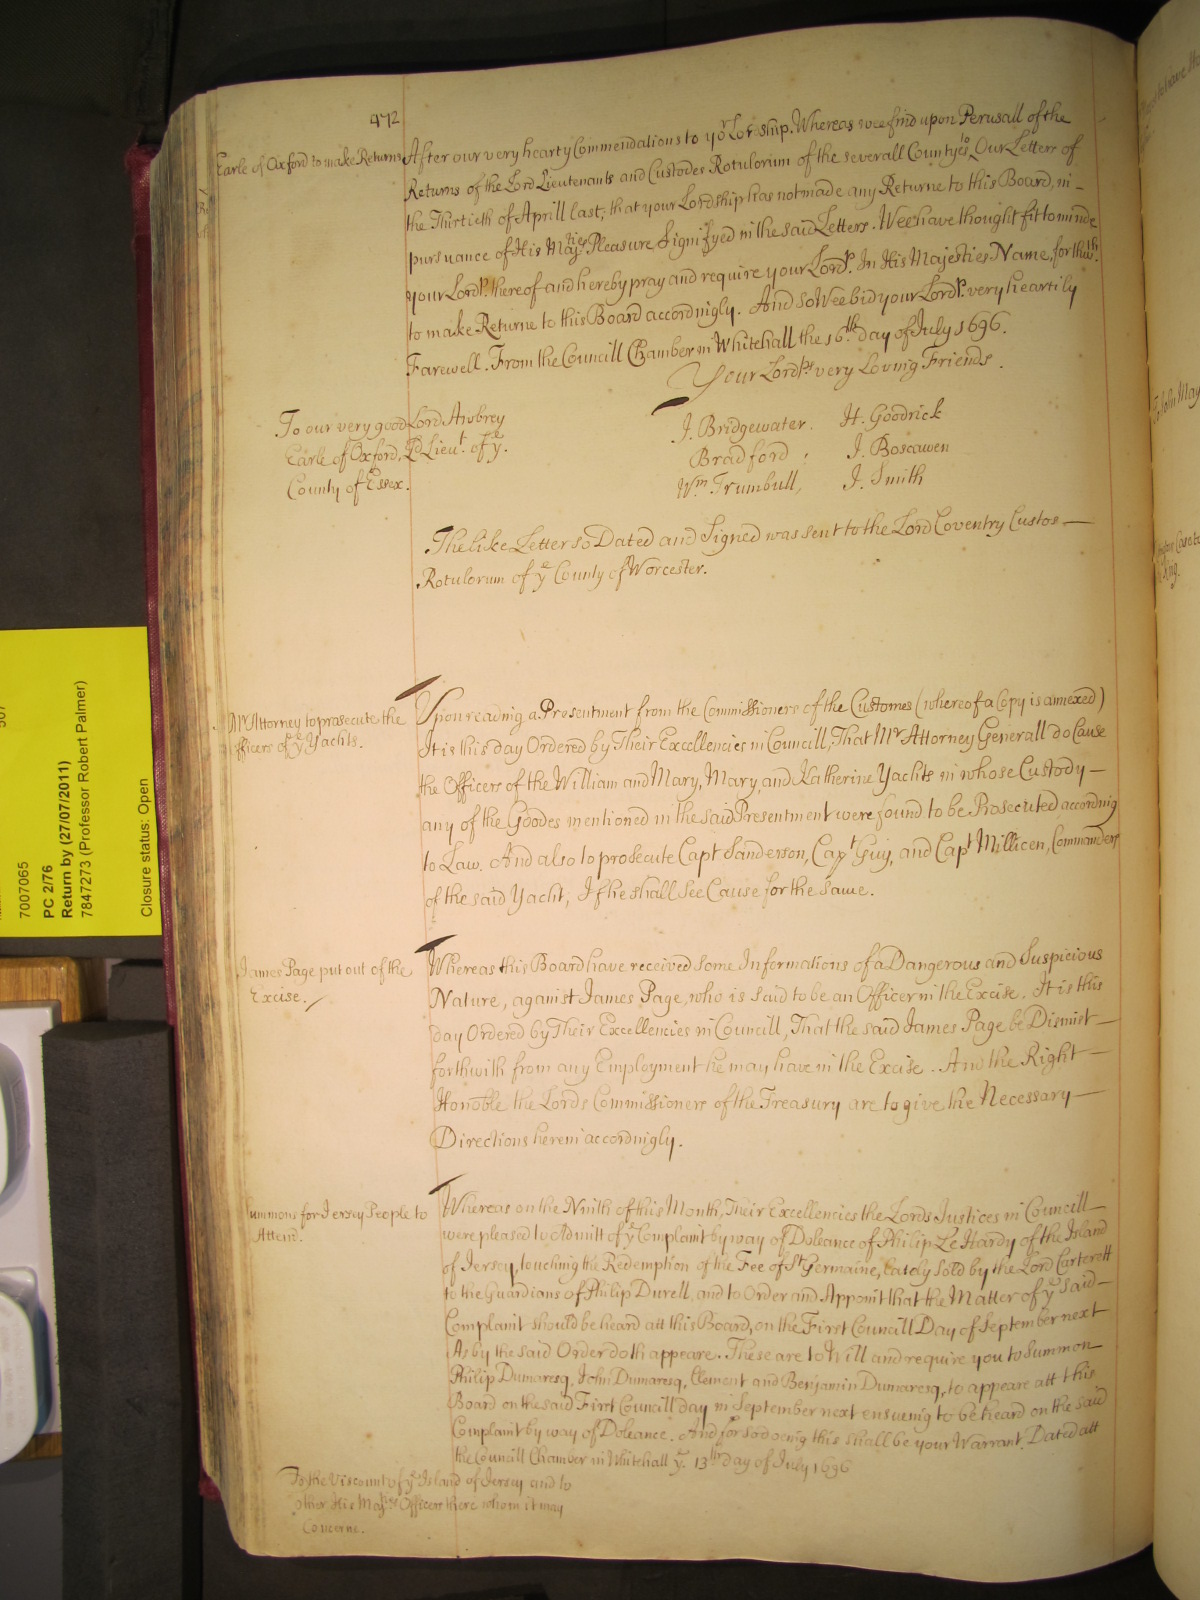 472
Earle of Oxford to make Returns
After our very hearty Commendations to yor Lordship. Whereas wee find upon Perusall of the
Returns of the Lord Lieutenants and Custodes Rotulorum of the severall Countyes, to Our Letters of
the Thirtieth of Aprill last, that your Lordship has not made any Returne to this Board, in
pursuance of His Majties Pleasure Signifyed in the said Letters. Wee have thought fit to minde
your Lordp. thereof and hereby pray and require your Lordp. In His Majesties Name, forthwth.
to make Returne to this Board accordingly. And so Wee bid your Lordp. very heartily
Farewell. From the Councill Chamber in Whitehall the 16th day of July 1696.
Your Lordps very Loving Friends.
To our very good Lord Awbrey
Earle of Oxford, Ld Lieut. of ye.
County of Essex.
J. Bridgewater. H. Goodrick
Bradford. J. Boscawen
Wm Trumbull, J. Smith
The like Letter so Dated and Signed was sent to the Lord Coventry Custos
Rotulorum of ye County of Worcester.
Mr Attorney to prosecute the
Officers of ye Yachts.
Upon reading a Presentment from the Commissioners of the Customes (whereof a Copy is annexed)
It is this day Ordered by Their Excellencies in Councill, That Mr Attorney Generall do Cause
the Officers of the William and Mary, Mary, and Katherine Yachts in whose Custody
any of the Goodes mentioned in the said Presentment were found to be Prosecuted according
to Law. And also to prosecute Capt Sanderson, Capt Guy, and Capt Millicen, Commanders
of the said Yacht, If he shall see Cause for the same.
James Page put out of the
Excise.
Whereas this Board have received some Informations of a Dangerous and Suspicious
Nature, against James Page, who is said to be an Officer in the Excise. It is this
day Ordered by Their Excellencies in Councill, That the said James Page be Dismist
forthwith from any Employment he may have in the Excise. And the Right
Honoble the Lords Commissioners of the Treasury are to give the Necessary
Directions herein accordingly.
Summons for Jersey People to
Attend.
Whereas on the Ninth of this Month, Their Excellencies the Lords Justices in Councill
were pleased to Admitt of ye Complaint by way of Doleance of Philip Le Hardy of the Island
of Jersey, touching the Redemption of the Fee of St Germaine, lately sold by the Lord Carterett
to the Guardians of Philip Durell, and to Order and Appoint that the Matter of ye said
Complaint should be heard att this Board, on the First Councill Day of September next
As by the said Order doth appeare. These are to Will and require you to Summon
Philip Dumaresq, John Dumaresq, Clement and Benjamin Dumaresq, to appeare att this
Board on the said First Councill day in September next ensueing to be heard on the said
Complaint by way of Doleance. And for so doeing this shall be your Warrant. Dated att
the Councill Chamber in Whitehall ye. 13th day of July 1696
To the Viscount of ye Island of Jersey and to
other His Majties Officers there whom it may
Concerne.
7007065
PC 2/76
Return by (27/07/2011)
7847273 (Professor Robert Palmer)
Closure status: Open